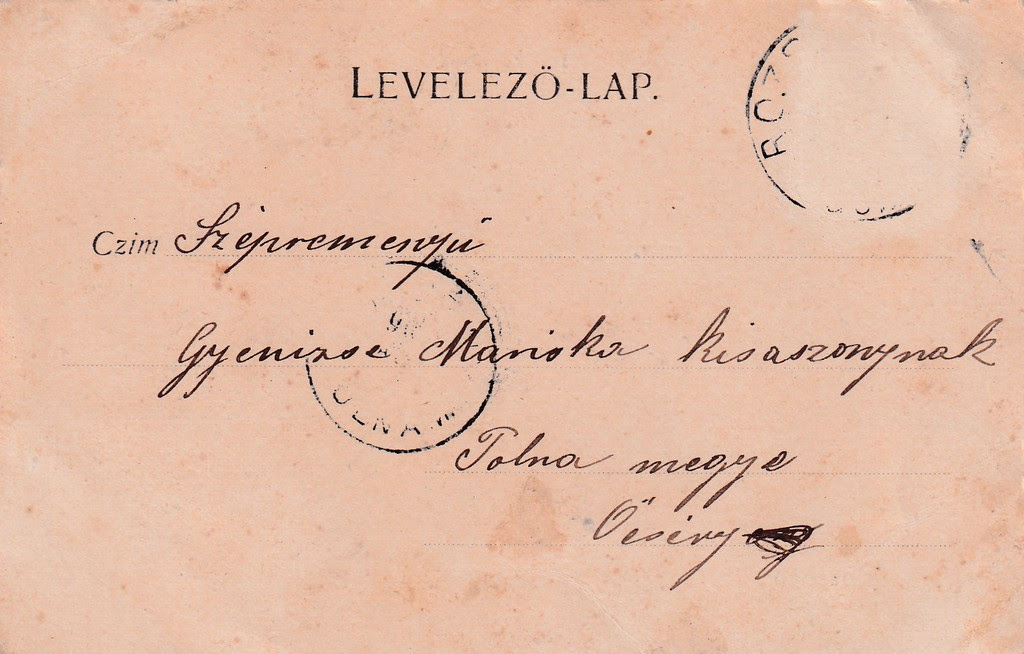 LEVELEZŐ-LAP.
Czim Szépremenyú
Gyenizse Mariska kisaszonynak
Tolna megye
Őcsény